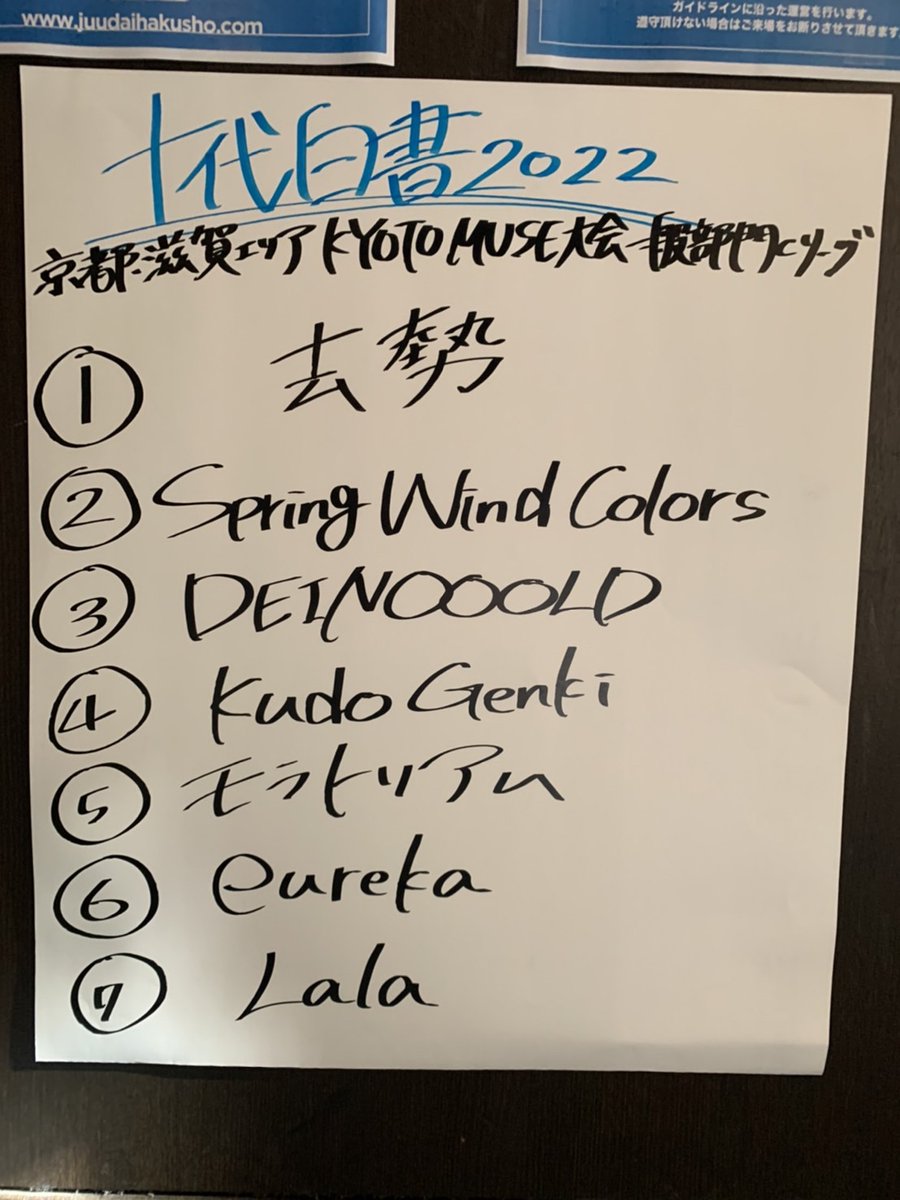 www.juudaihakusho.com
ガイドラインに沿った運営を行います。
遵守頂けない場合はご来場をお断りさせて頂きます
十代白書2022
京都・滋賀エリア KYOTO MUSE大会 一般部門Cリーグ
① 去勢
② Spring Wind Colors
③ DEINOOOLD
④ Kudo Genki
⑤ モラトリアム
⑥ eureka
⑦ Lala